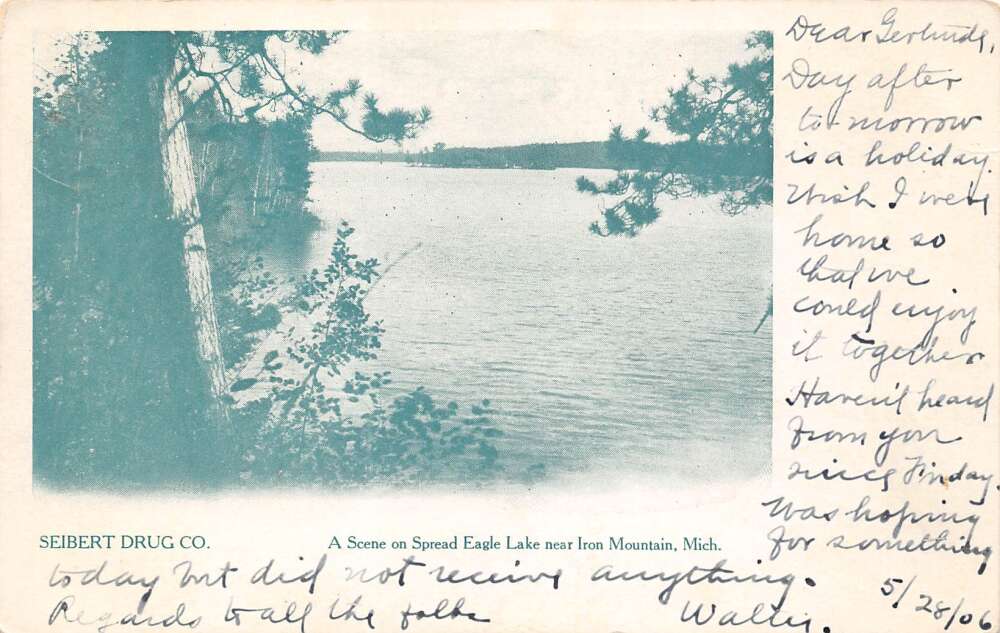 Dear Gertrude,
Day after
to-morrow
is a holiday.
Wish I were
home so
that we
could enjoy
it together
Haven't heard
from you
since Friday.
Was hoping
for something
SEIBERT DRUG CO.
A Scene on Spread Eagle Lake near Iron Mountain, Mich.
today but did not receive anything.
Regards to all the folks
Walter.
5/28/06